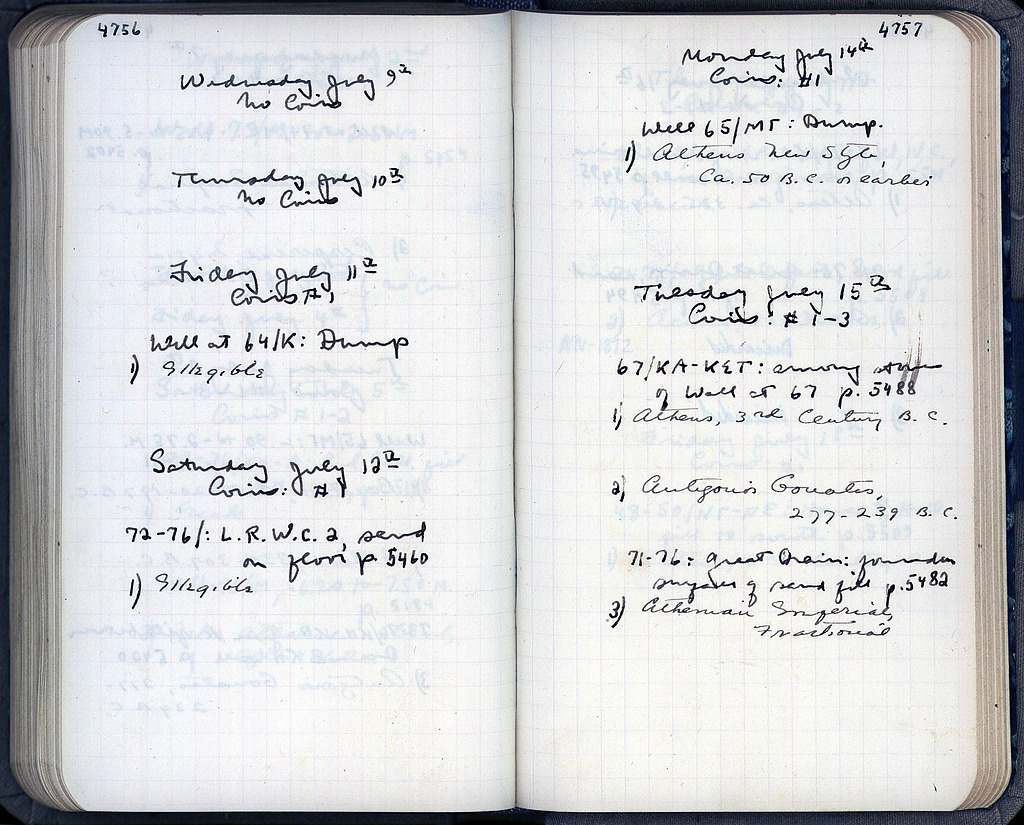 4756
Wednesday July 9th
No Coins
Thursday July 10th
No Coins
Friday July 11th
Coins # 1
Well at 64/K: Dump
1) Illegible
Saturday July 12th
Coins: # 1
72-76/: L.R.W.C. 2, sand
on floor p. 5460
1) Illegible
4757
Monday July 14th
Coins: #1
Well 65/MT: Dump.
1) Athens New Style,
Ca. 50 B.C. or earlier
Tuesday July 15th
Coins: # 1-3
67/KA-KET: among
of Wall at 67 p. 5488
1) Athens, 3rd Century B.C.
2) Antigonos Gonatas,
277-239 B.C.
71-76: Great Drain:
of sand fill p. 5482
3) Athenian Imperial,
Fractional